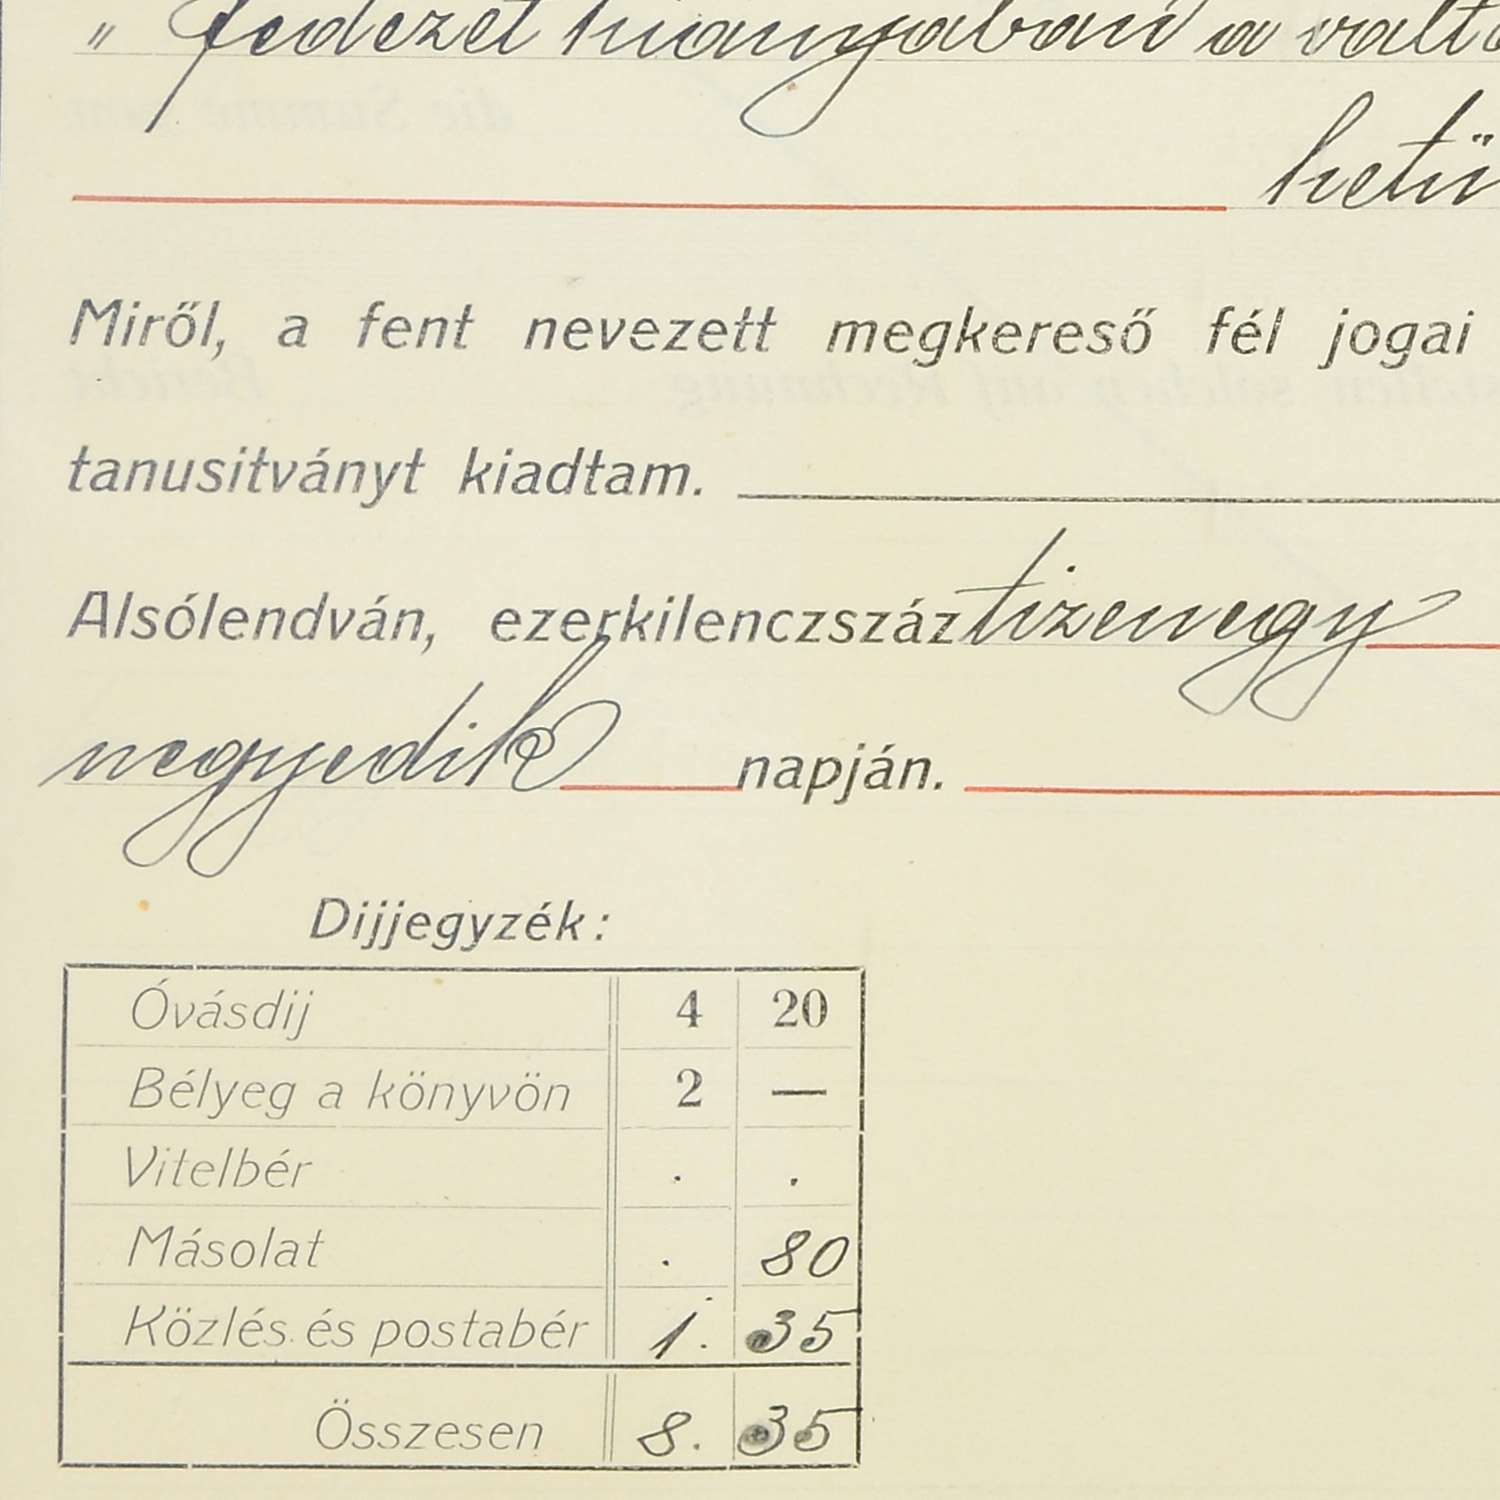 " fedezet hiányában a váltó
hetü
Miről, a fent nevezett megkereső fél jogai
tanusitványt kiadtam.
Alsólendván, ezerkilenczszáz tizenegy
negyedik napján.
Dijjegyzék:
Óvásdij 4 20
Bélyeg a könyvön 2 —
Vitelbér . .
Másolat . 80
Közlés és postabér 1. 35
Összesen 8. 35